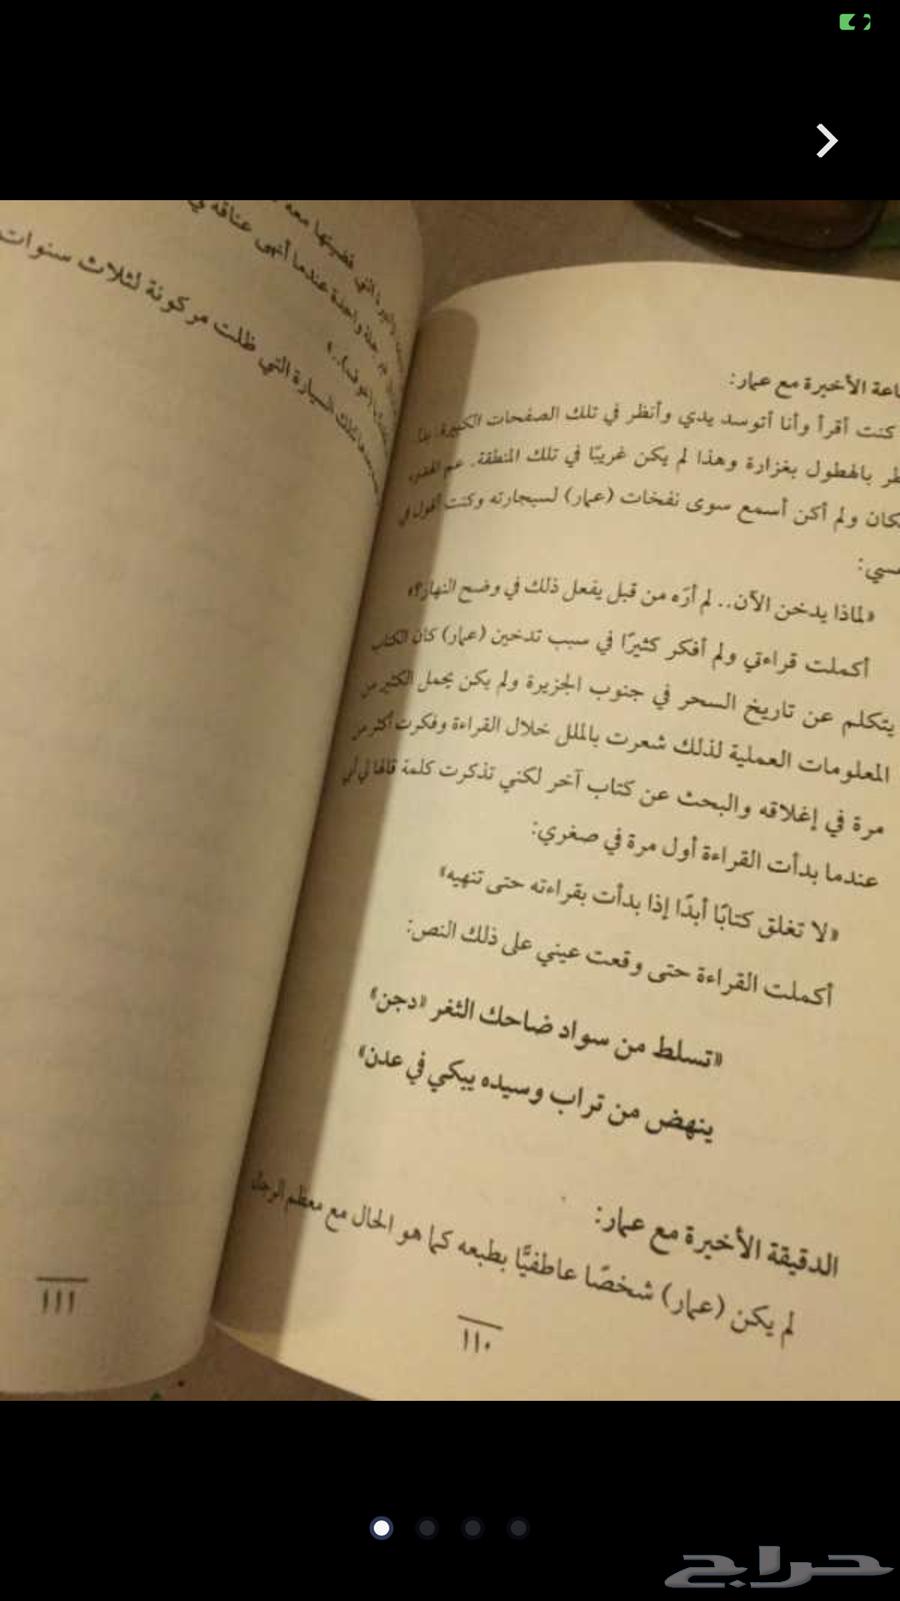 الأخيرة مع عمار:
كنت أقرأ وأنا أتوسد يدي وأنظر في تلك الصفحات الكبيرة.
بالهطول بغزارة وهذا لم يكن غريبًا في تلك المنطقة. عم
ولم أكن أسمع سوى نفخات (عمار) لسيجارته وكنت أقول في
«لماذا يدخن الآن.. لم أرَه من قبل يفعل ذلك في وضح النهار؟»
أكملت قراءتي ولم أفكر كثيرًا في سبب تدخين (عمار) كان الكتاب
يتكلم عن تاريخ السحر في جنوب الجزيرة ولم يكن يحمل الكثير من
المعلومات العملية لذلك شعرت بالملل خلال القراءة وفكرت أكثر من
مرة في إغلاقه والبحث عن كتاب آخر لكني تذكرت كلمة قالها لي أبي
عندما بدأت القراءة أول مرة في صغري:
«لا تغلق كتابًا أبدًا إذا بدأت بقراءته حتى تنهيه»
أكملت القراءة حتى وقعت عيني على ذلك النص:
«تسلط من سواد ضاحك الثغر «دجن»
ينهض من تراب وسيده يبكي في عدن»
الدقيقة الأخيرة مع عمار:
لم يكن (عمار) شخصًا عاطفيًّا بطبعه كما هو الحال مع معظم الرجال
١١٠
قضيتها معه
واحدة عندما أنهى عناقه
تلك السيارة التي ظلت مركونة لثلاث سنوات
١١١
حراج